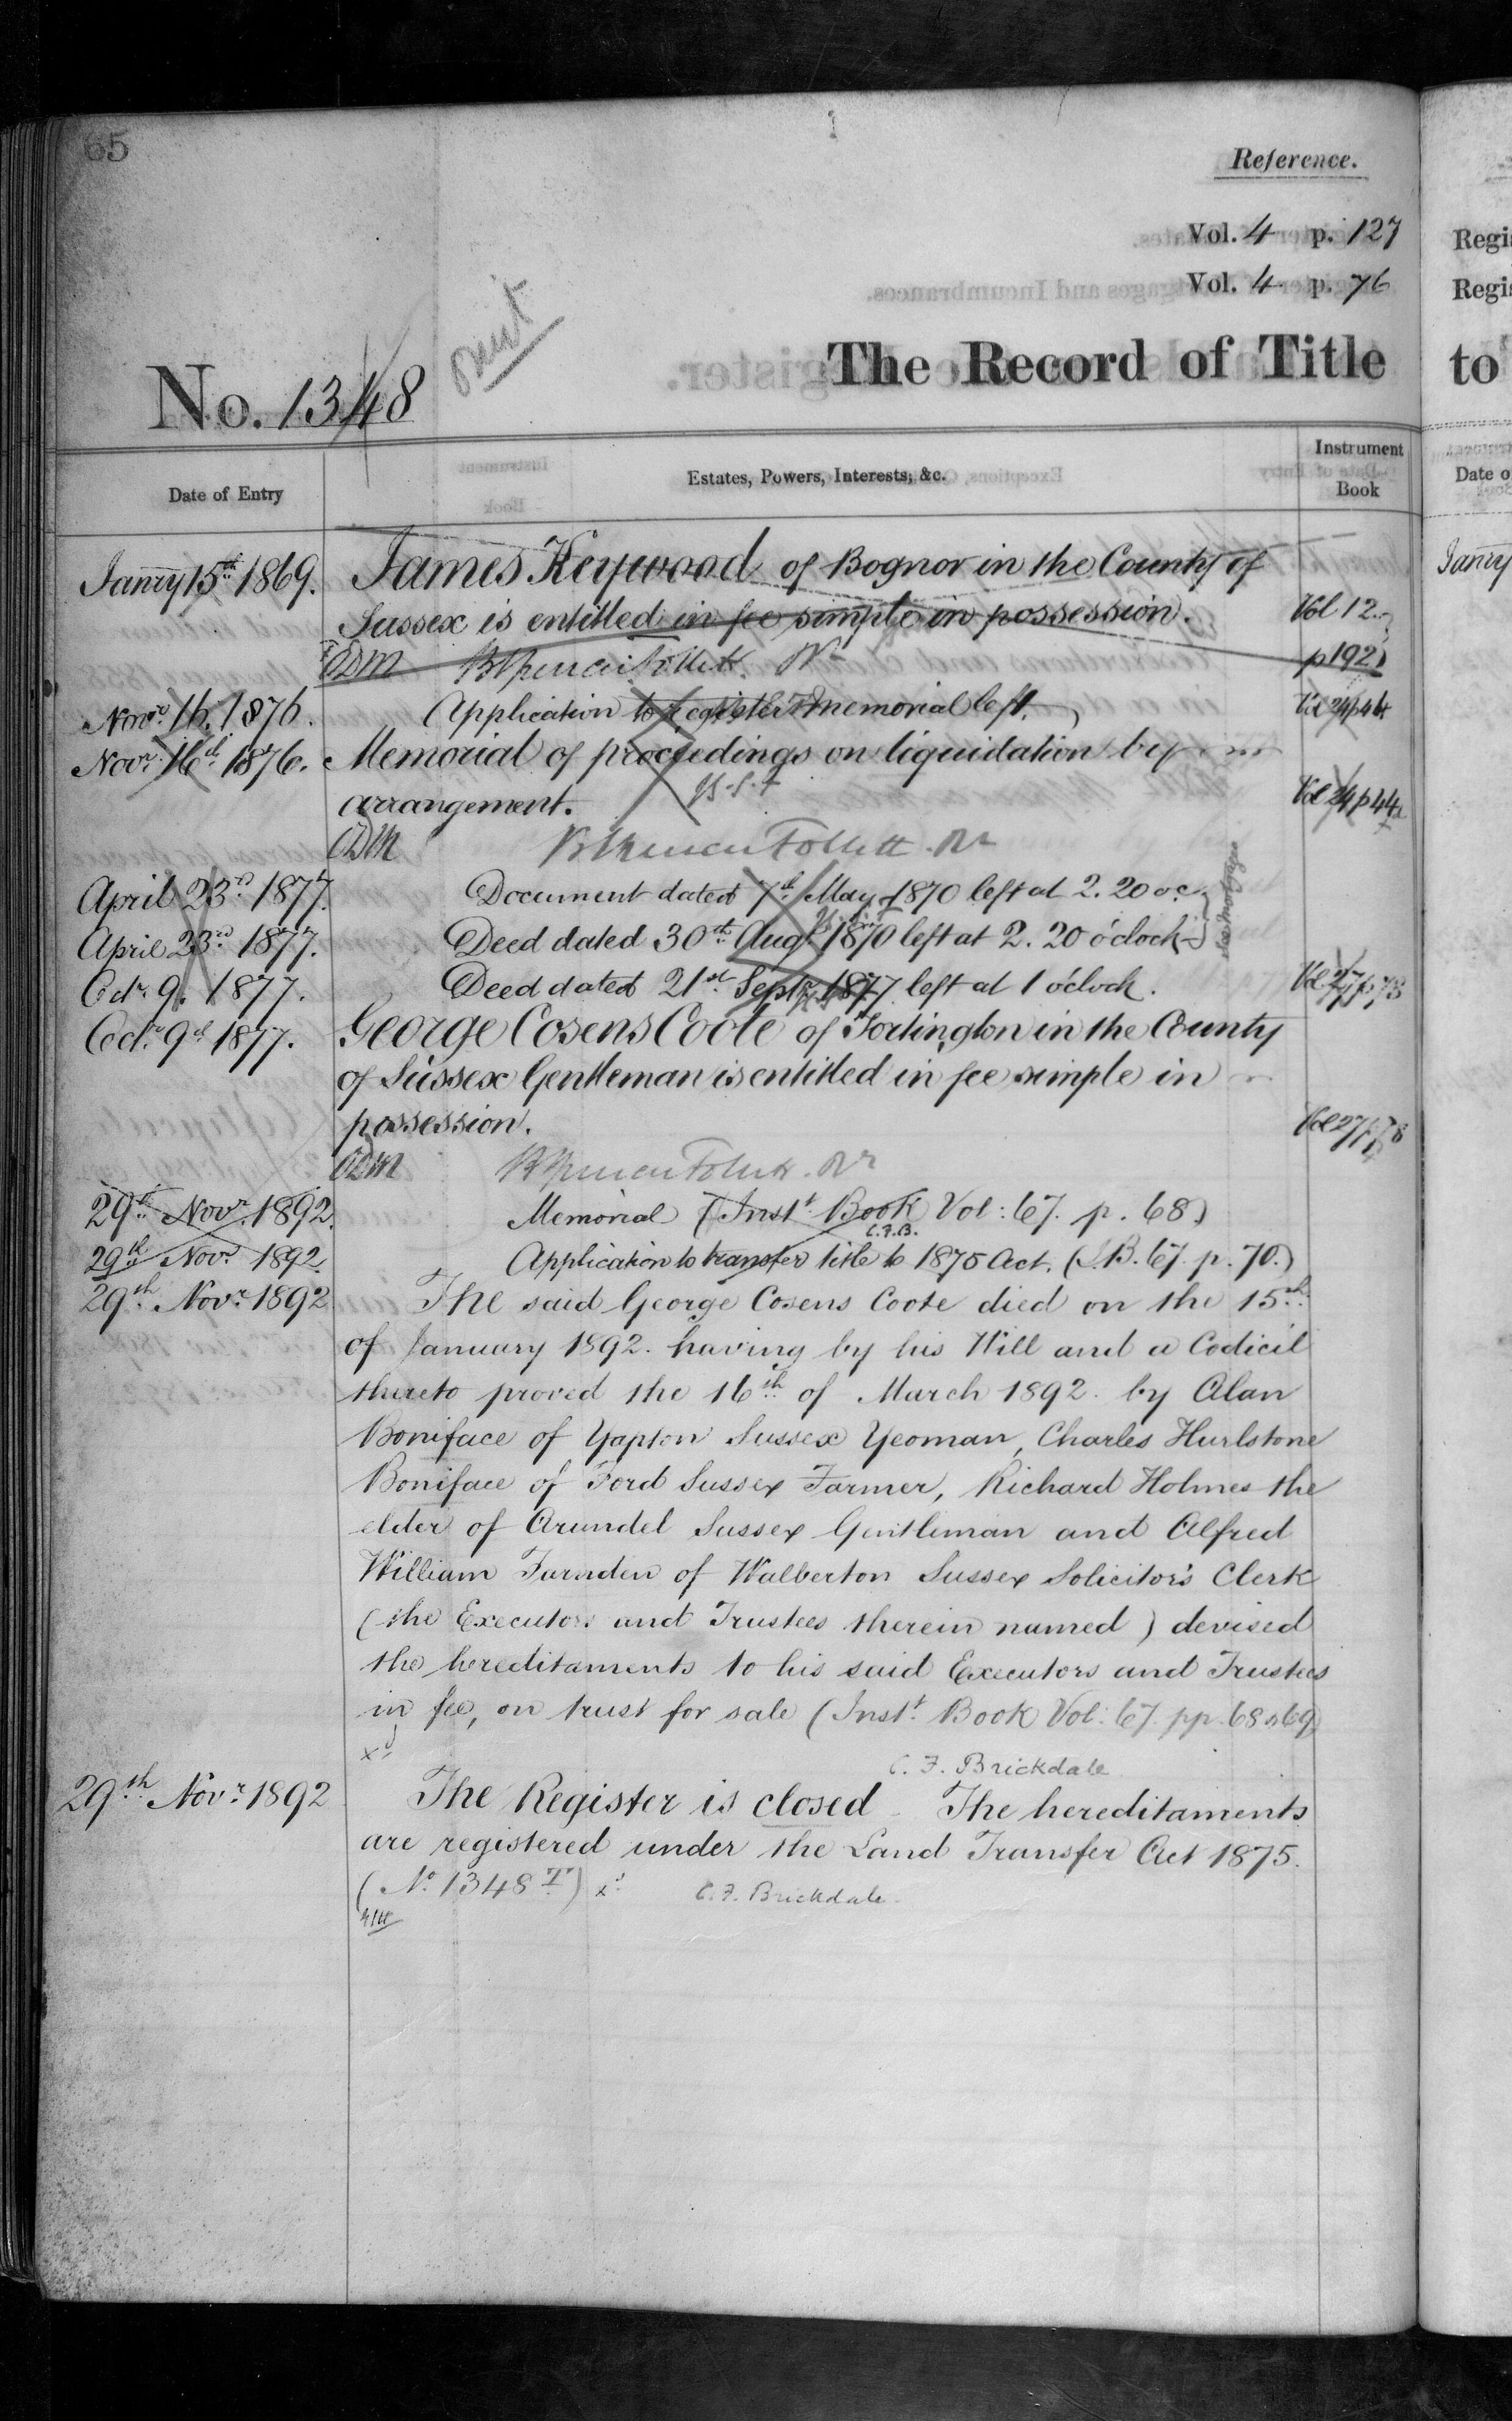 65
Reference.
Vol. 4 p. 127
Vol. 4 p. 76
omit
The Record of Title
No. 1348
Date of Entry
Estates, Powers, Interests, &c.
Instrument Book
Janry 15th 1869. James Keywood of Bognor in the County of
Sussex is entitled in fee simple in possession. Vol 12
p 192
Novr 16. 1876. Application to register memorial left. Vol 24 p 44
Novr 16th 1876. Memorial of proceedings on liquidation by
arrangement. Vol 24 p 44
Follett
April 23rd 1877. Document dated 7th May 1870 left at 2.20 oc
April 23rd 1877. Deed dated 30th Augt 1870 left at 2.20 o'clock
see Mortgages
Octr 9. 1877. Deed dated 21st Septr 1877 left at 1 o'clock. Vol 27 p 73
Octr 9th 1877. George Cosens Coote of Tortington in the County
of Sussex Gentleman is entitled in fee simple in
possession. Vol 27
29th Novr 1892. Memorial (Inst Book Vol: 67. p. 68)
C.F.B.
29th Novr 1892. Application to transfer title to 1875 Act. (I.B. 67. p. 70.)
29th Novr 1892 The said George Cosens Coote died on the 15th
of January 1892. having by his Will and a Codicil
thereto proved the 16th of March 1892. by Alan
Boniface of Yapton Sussex Yeoman, Charles Hurlstone
Boniface of Ford Sussex Farmer, Richard Holmes the
elder of Arundel Sussex Gentleman and Alfred
William Farnden of Walberton Sussex Solicitor's Clerk
(the Executors and Trustees therein named) devised
the hereditaments to his said Executors and Trustees
in fee, on trust for sale (Inst. Book Vol: 67. pp. 68 & 69)
xd
C. F. Brickdale
29th Novr 1892 The Register is closed. The hereditaments
are registered under the Land Transfer Act 1875.
(No 1348 T) xd C. F. Brickdale
Regi
Regi
to
Date o
Janry